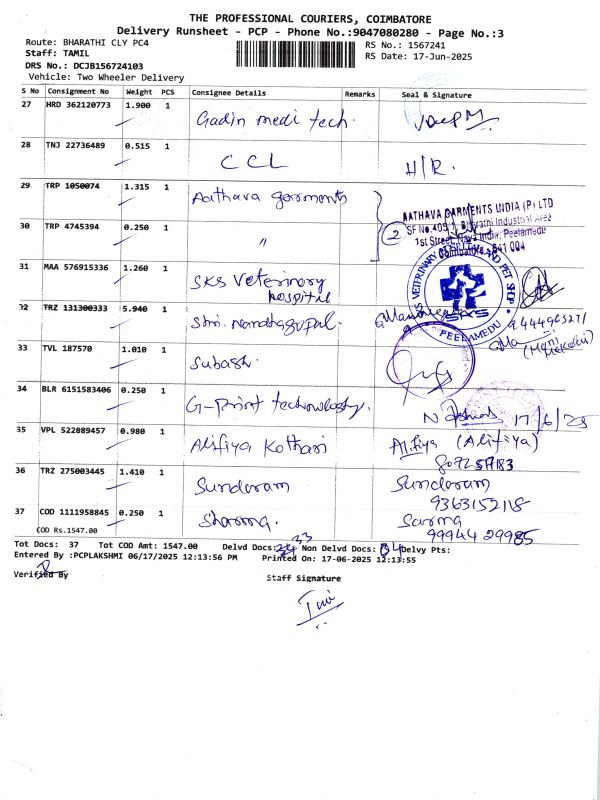 THE PROFESSIONAL COURIERS, COIMBATORE
Delivery Runsheet - PCP - Phone No.:9047080280 - Page No.:3
Route: BHARATHI CLY PC4
RS No.: 1567241
Staff: TAMIL
RS Date: 17-Jun-2025
DRS No.: DCJB156724103
Vehicle: Two Wheeler Delivery
S No Consignment No Weight PCS Consignee Details Remarks Seal & Signature
27 HRD 362120773 1.900 1 Gadin medi tech.
28 TNJ 22736489 0.515 1 CCL H/R.
29 TRP 1050074 1.315 1 Aathava garments
AATHAVA GARMENTS INDIA (P) LTD
SF No.405/1, Bharathi Industrial Area
1st Street, Peelamedu
Coimbatore - 641 004
30 TRP 4745394 0.250 1 " 2
31 MAA 576915336 1.260 1 SKS Veterinary
hospital
VETERINARY HOSPITAL AND PET SHOP
SKS
PEELAMEDU
32 TRZ 131300333 5.940 1 Shri. Nandhagopal.
33 TVL 187570 1.010 1 Subash.
34 BLR 6151583406 0.250 1 G-Print technology. 17/6/25
35 VPL 522889457 0.980 1 Alifiya Kothari Alifiya (Alifiya)
36 TRZ 275003445 1.410 1 Sunderam Sunderam
9363152118
37 COD 1111958845 0.250 1 Sharma. Sarma
COD Rs.1547.00 99944 29985
33
Tot Docs: 37 Tot COD Amt: 1547.00 Delvd Docs: Non Delvd Docs: 04 Delvy Pts:
Entered By :PCPLAKSHMI 06/17/2025 12:13:56 PM Printed On: 17-06-2025 12:13:55
Verified By
Staff Signature